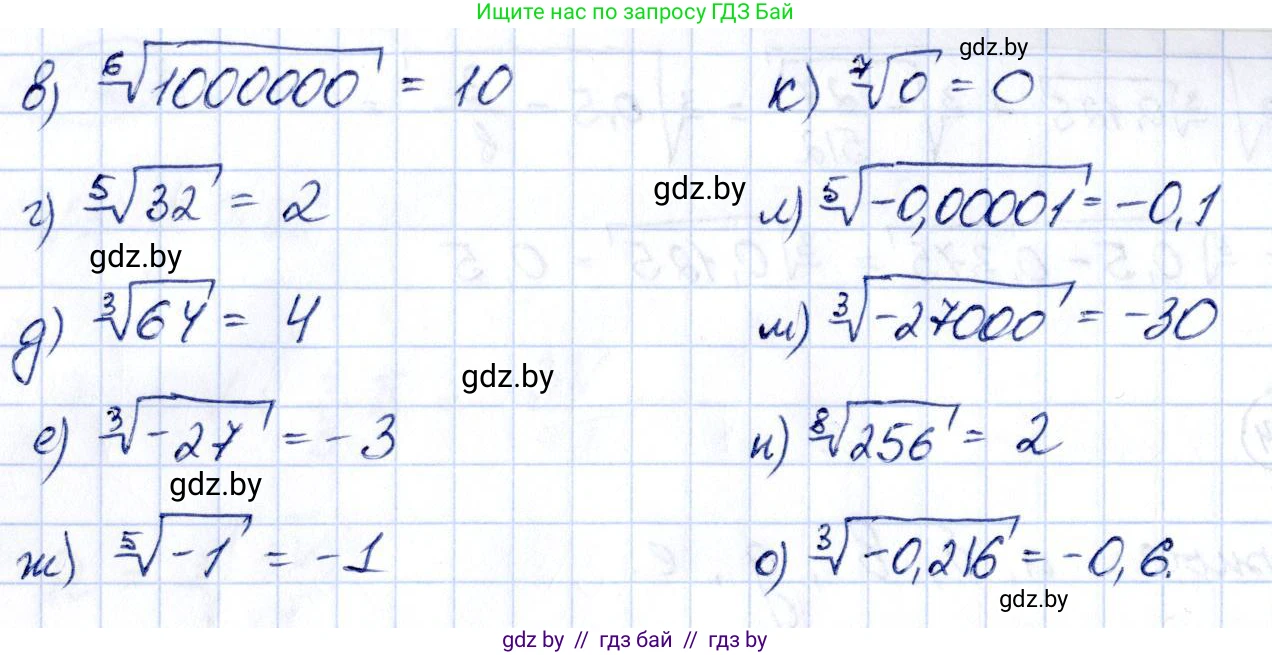 Ищите нас по запросу ГДЗ Бай
в) ⁶√1000000 = 10
г) ⁵√32 = 2
д) ³√64 = 4
е) ³√-27 = -3
ж) ⁵√-1 = -1
к) ⁷√0 = 0
л) ⁵√-0,00001 = -0,1
м) ³√-27000 = -30
н) ⁸√256 = 2
о) ³√-0,216 = -0,6.
gdz.by
gdz.by
gdz.by
gdz.by
gdz.by
gdz.by
gdz.by // гдз бай // гдз by